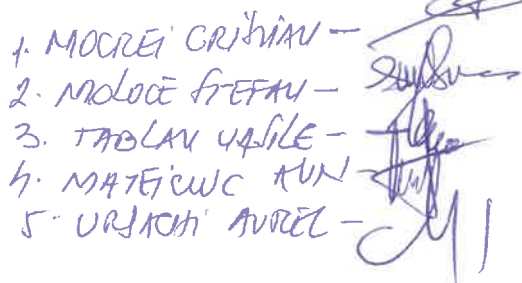 1. MOCREI CRISTIAN -
2. MOLOCE STEFAN -
3. TABLAN VASILE -
4. MATEICIUC
5. URSACHI AUREL -